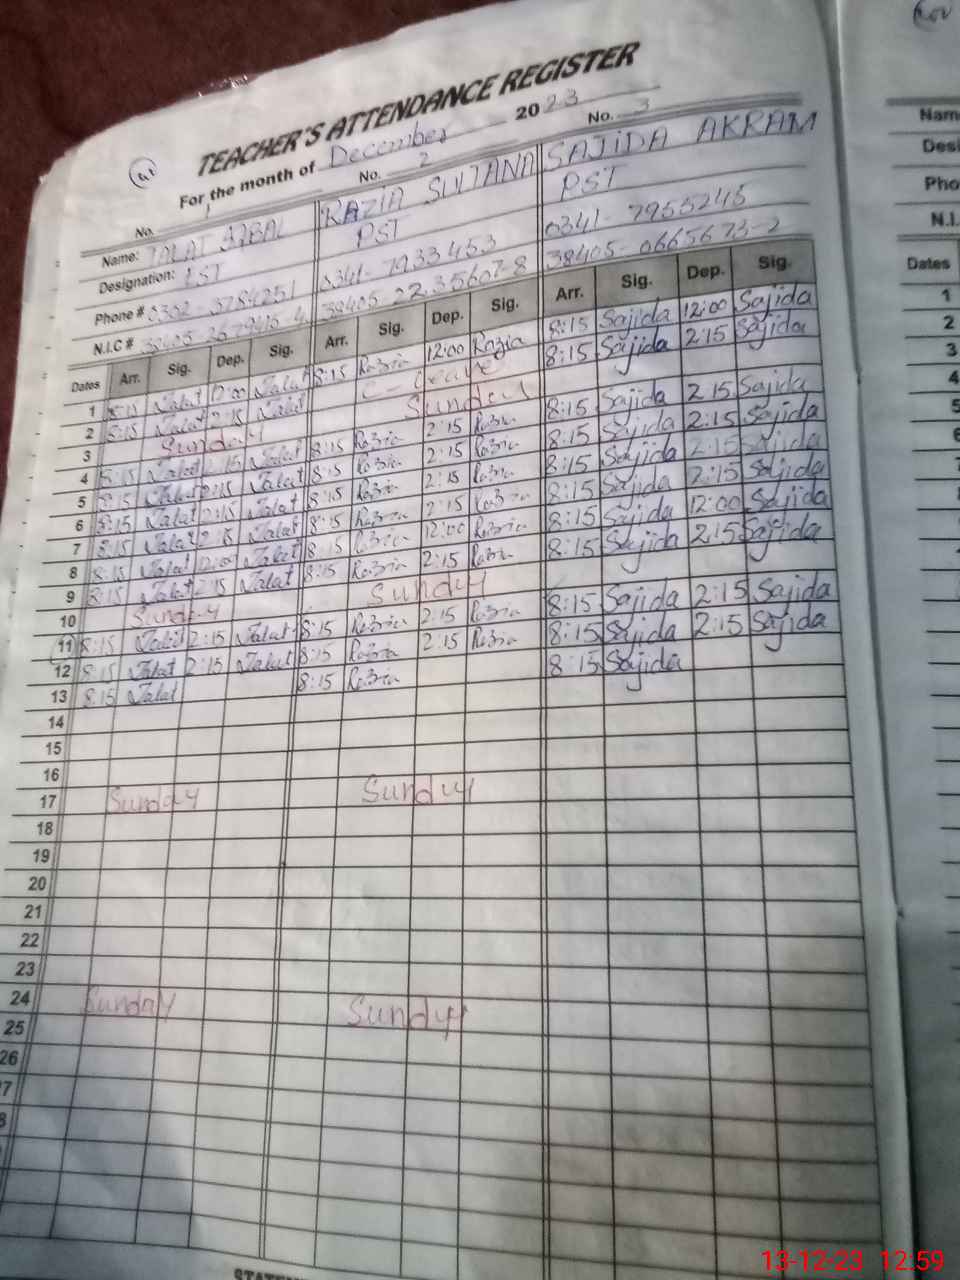 TEACHER'S ATTENDANCE REGISTER
For the month of December 2023
No. 1 No. 2 No. 3
Name: TALAT IQBAL RAZIA SULTANA SAJIDA AKRAM
Designation: PST PST PST
Phone # 0341-7933453 0341-7955245
N.I.C #
Dates Arr. Sig. Dep. Sig. Arr. Sig. Dep. Sig. Arr. Sig. Dep. Sig.
1 8:15 Talat 12:00 Talat 8:15 Razia 12:00 Razia 8:15 Sajida 12:00 Sajida
2 8:15 Talat 2:15 Talat C-Leave 8:15 Sajida 2:15 Sajida
3 Sunday Sunday
4 8:15 Talat 2:15 Talat 8:15 Razia 2:15 Razia 8:15 Sajida 2:15 Sajida
5 8:15 Talat 2:15 Talat 8:15 Razia 2:15 Razia 8:15 Sajida 2:15 Sajida
6 8:15 Talat 2:15 Talat 8:15 Razia 2:15 Razia 8:15 Sajida 2:15 Sajida
7 8:15 Talat 2:15 Talat 8:15 Razia 2:15 Razia 8:15 Sajida 2:15 Sajida
8 8:15 Talat 12:00 Talat 8:15 Razia 12:00 Razia 8:15 Sajida 12:00 Sajida
9 8:15 Talat 2:15 Talat 8:15 Razia 2:15 Razia 8:15 Sajida 2:15 Sajida
10 Sunday Sunday
11 8:15 Talat 2:15 Talat 8:15 Razia 2:15 Razia 8:15 Sajida 2:15 Sajida
12 8:15 Talat 2:15 Talat 8:15 Razia 2:15 Razia 8:15 Sajida 2:15 Sajida
13 8:15 Talat 8:15 Razia 8:15 Sajida
14
15
16
17 Sunday Sunday
18
19
20
21
22
23
24 Sunday Sunday
25
26
Dates
1
2
3
4
5
6
13-12-23 12:59